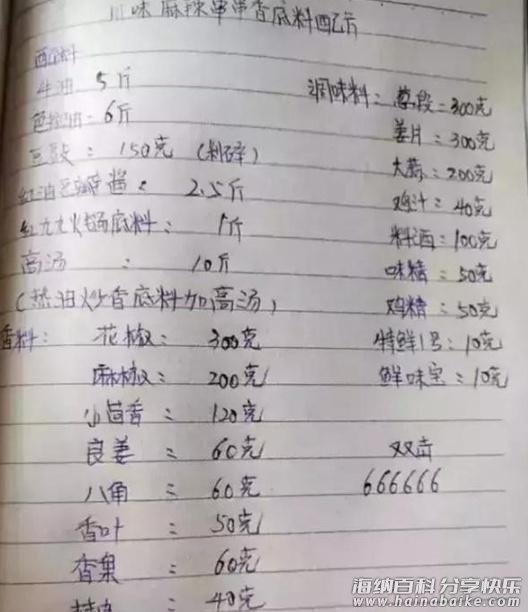 川味麻辣串串香底料配方
配料
牛油 5斤
色拉油:6斤
豆豉:150克(剁碎)
红油豆瓣酱:2.5斤
红九九火锅底料:1斤
高汤:10斤
(热油火炒香底料加高汤)
香料:花椒:300克
麻椒:200克
小茴香:120克
良姜:60克
八角:60克
香叶:50克
香果:60克
40克
调味料:葱段:300克
姜片:300克
大蒜:200克
鸡汁:40克
料酒:100克
味精:50克
鸡精:50克
特鲜1号:10克
鲜味宝:10克
双击
666666
海纳百科 分享快乐
www.hainabaike.com